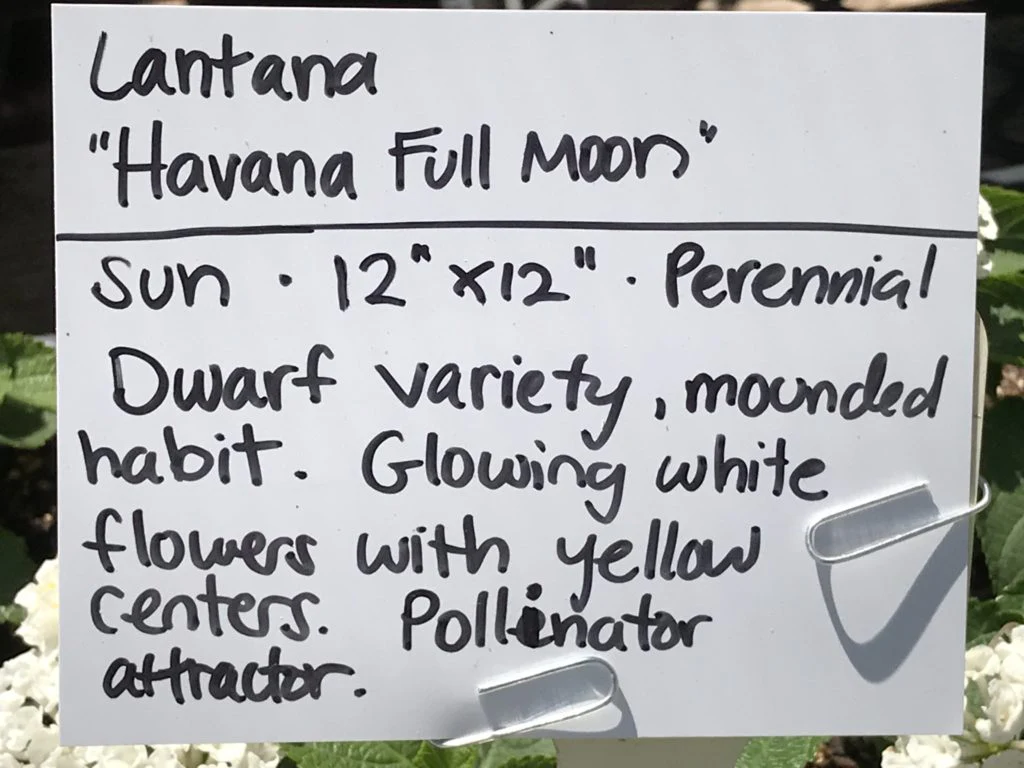 Lantana
"Havana Full Moon"
Sun · 12" x12" · Perennial
Dwarf variety, mounded
habit. Glowing white
flowers with yellow
centers. Pollinator
attractor.